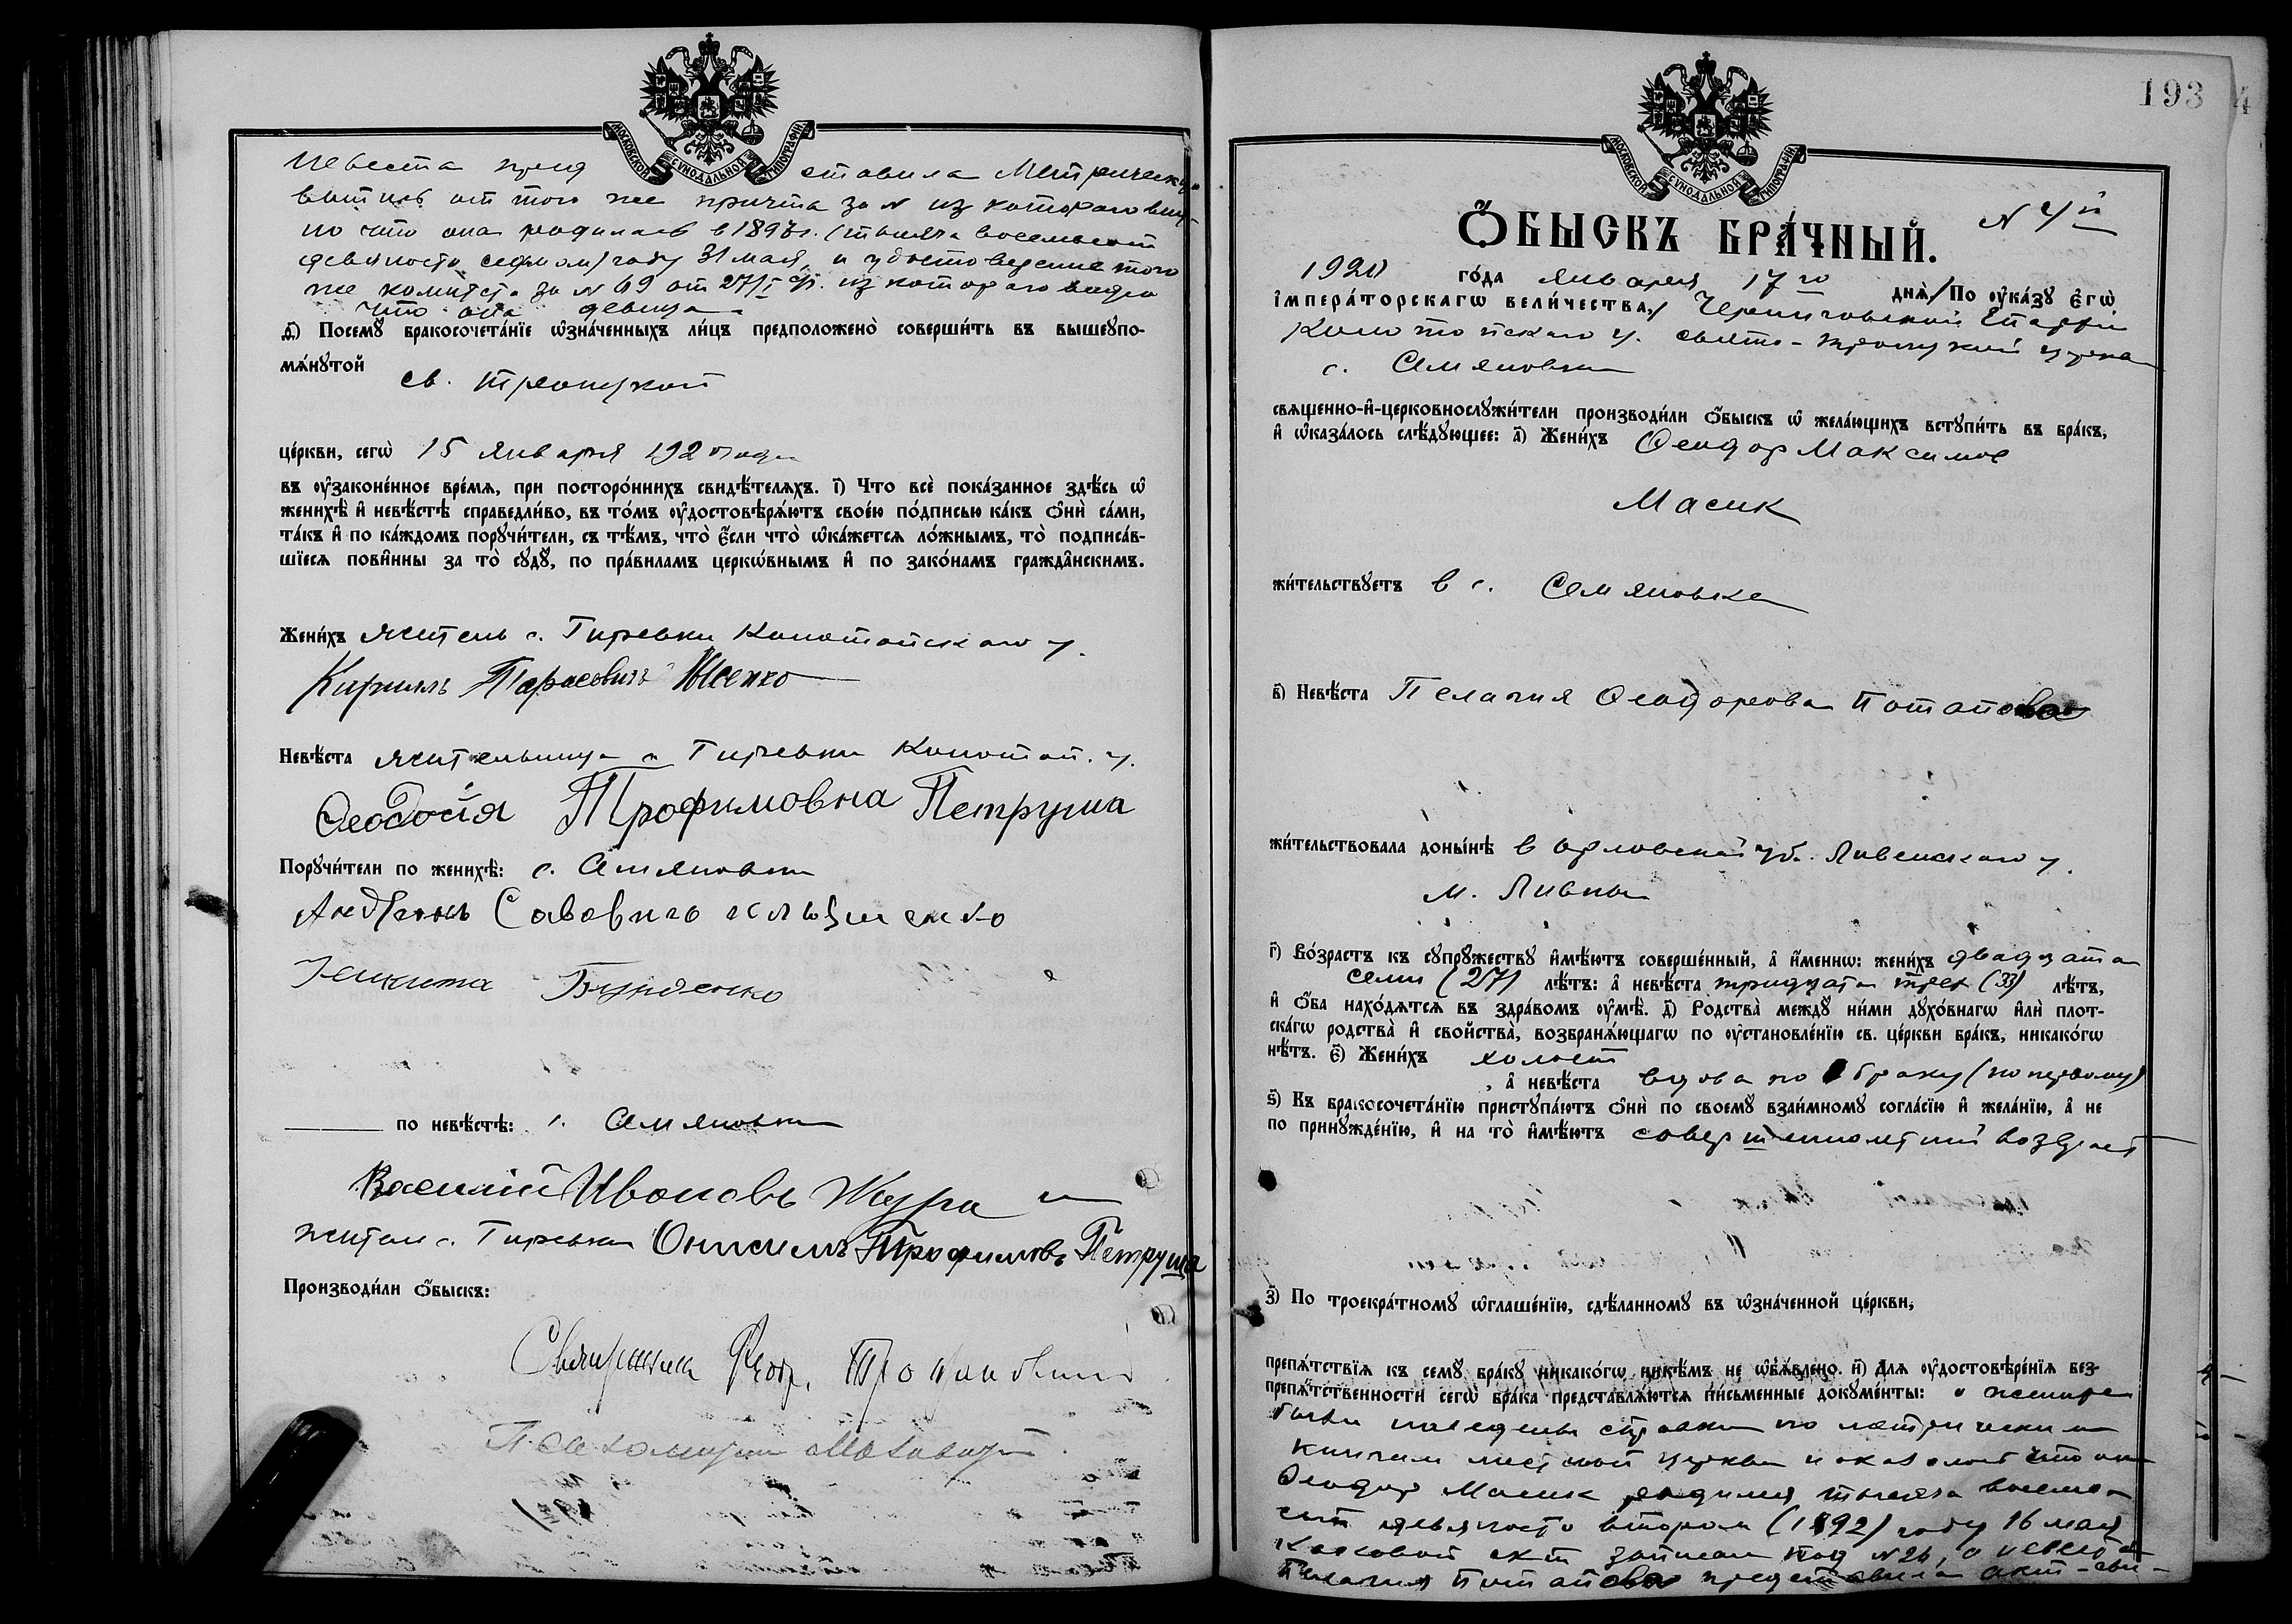 МОСКОВСКОЙ СѴНОДАЛЬНОЙ ТИПОГРАФІИ
Невеста пред ставила Метрическ.
выпись от того же причта за N из которого вид-
но что она родилась в 1897 г. (тысяча восемьсот
девяносто седьмом) году 31 мая, и удостоведение того
же комитета за N 69 от 27/I с/г. из которого видно
что она девица
д҃і) Посемꙋ бракосочета́нїе ѡ҆зна́ченныхъ ли́цъ предположено̀ соверши́ть въ вышеꙋпо-
мѧ́нꙋтой св. Троицкой
це́ркви, сегѡ̀ 15 января 1920 года
въ оу҆законе́нное вре́мѧ, при посторо́ннихъ свидѣ́телѧхъ. і҃) Что всѐ пока́занное здѣ́сь ѡ҆
женихѣ̀ и҆ невѣ́стѣ справедли́во, въ то́мъ оу҆достовѣрѧ́ютъ свое́ю по́дписью ка́къ ѻ҆нѝ са́ми,
та́къ и҆ по ка́ждомъ порꙋчи́тели, съ тѣ́мъ, что̀ є҆́сли что̀ ѡ҆ка́жетсѧ ло́жнымъ, то̀ подписа́в-
шїесѧ пови́нны за то̀ сꙋдꙋ̀, по пра́виламъ церкѡ́внымъ и҆ по зако́намъ гражда̂нскимъ.
Жени́хъ житель с. Гиревки Конотопского у.
Кириллъ Тарасовичъ
Невѣ́ста жительница с. Гиревки Конотоп. у.
Ѳеодосія Трофимовна Петруша
Порꙋчи́тели по женихѣ̀: с. Семяновки
Андреянъ Савовичъ
Никита
по невѣ́стѣ: с. Семяновки
Василій Ивановъ Жура и
жител с. Гиревки Онисимъ Трофимовъ Петруша
Производи́ли ѻ҆́быскъ:
Священник Ѳеод.
Псаломщик
193
4
МОСКОВСКОЙ СѴНОДАЛЬНОЙ ТИПОГРАФІИ
Ѻ҆́БЫСКЪ БРА́ЧНЫЙ. N 4й
1920 го́да января 17го днѧ̀ / По оу҆ка́зꙋ є҆гѡ̀
і҆мпера́торскагѡ вели́чества,/ Черниговской Епархии
Конотопского у. свято-троицкой церкви
с. Семяновки
свѧщенно-и҆-церковнослꙋжи́тели производи́ли ѻ҆́быскъ ѡ҆ жела́ющихъ встꙋпи́ть въ бра́къ,
и҆ ѡ҆каза́лось слѣ́дꙋющее: а҃) Жени́хъ Феодор Максимов
Масик
жи́тельствꙋетъ в с. Семяновке
в҃) Невѣ́ста Пелагия Феодорова Потапова
жи́тельствовала доны́нѣ в Орловской губ. Ливенского у.
м. Ливны
г҃) Во́зрастъ къ сꙋпрꙋ́жествꙋ и҆мѣ́ютъ соверше́нный, а҆ и҆́меннѡ: жени́хъ двадцати
семи (27) лѣ́тъ: а҆ невѣ́ста тридцати трех (33) лѣ́тъ,
и҆ ѻ҆́ба нахо́дѧтсѧ въ здра́вомъ оу҆мѣ̀. д҃) Родства̀ междꙋ̀ ни́ми дꙋхо́внагѡ и҆лѝ плот-
ска́гѡ родства̀ и҆ свойства̀, возбранѧ́ющагѡ по оу҆становле́нїю св. це́ркви бра́къ, никако́гѡ
нѣ́тъ. є҃) Жени́хъ холост
, а҆ невѣ́ста вдова по браку (по первому)
ѕ҃) Къ бракосочета́нїю пристꙋпа́ютъ ѻ҆нѝ по своемꙋ̀ взаи́мномꙋ согла́сїю и҆ жела́нїю, а҆ не
по принꙋжде́нїю, и҆ на то̀ и҆мѣ́ютъ совершеннолетний возраст
з҃) По троекра́тномꙋ ѡ҆глаше́нїю, сдѣ́ланномꙋ въ ѡ҆зна́ченной це́ркви,
препѧ́тствїѧ къ семꙋ̀ бра́кꙋ никако́гѡ никѣ́мъ не ѡ҆б̾ѧ́влено. и҃) Длѧ оу҆достовѣре́нїѧ без-
препѧ́тственности сегѡ̀ бра́ка представлѧ́ютсѧ пи́сьменные докꙋме́нты: о женихе
были наведены справки по метрическим
книгам местной церкви и оказалось что он
Феодор Масик родился тысяча восемь-
сот девяносто втором (1892) году 16 мая
каковой акт записан под N 26, а невеста
Пелагия Потапова представила акт-сви-